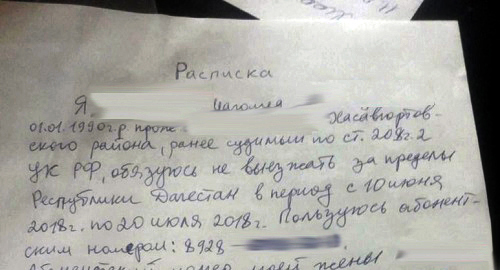 Расписка
Я
01.01.1990 г.р. прож. Хасавюртов-
ского района, ранее судимый по ст. 208 ч. 2
УК РФ, обязуюсь не выезжать за пределы
Республики Дагестан в период с 10 июня
2018 г. по 20 июля 2018 г. Пользуюсь абонент-
ским номером: 8928
Абонентский номер моей жены